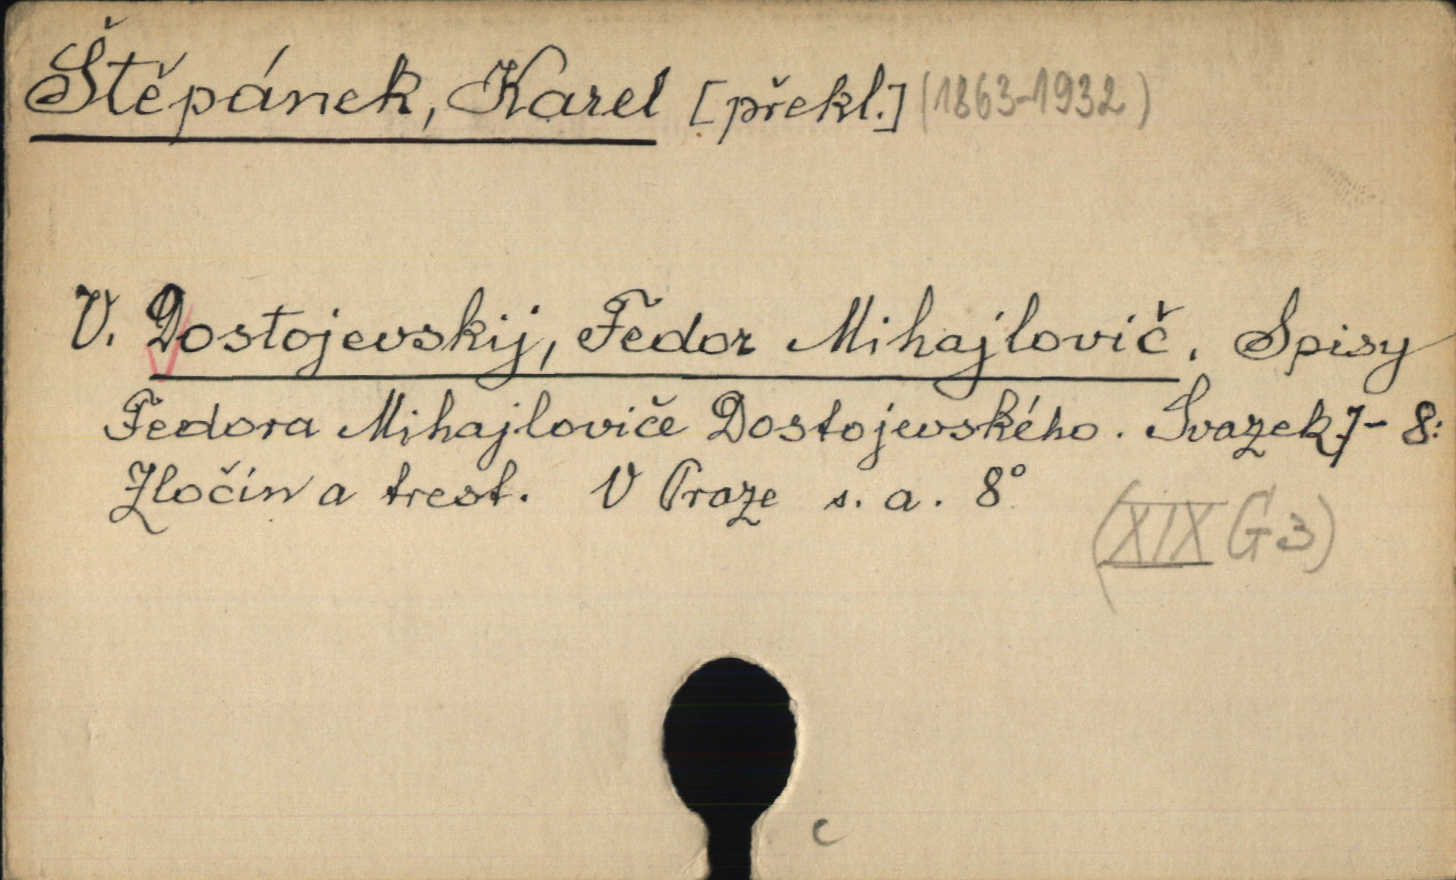 Štěpánek, Karel [překl.] (1863-1932)
V. Dostojevskij, Fedor Mihajlovič. Spisy
Fedora Mihajloviče Dostojevského. Svazek 7- 8:
Zločin a trest. V Praze s. a. 8°
(XIX G 3)
c